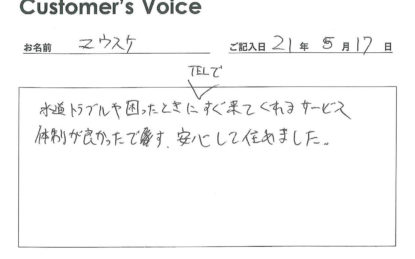 Customer's Voice
お名前 エウスケ ご記入日 21 年 5 月 17 日
TELで
水道トラブルや困ったときにすぐ来てくれるサービス
体制が良かったです、安心して住めました。